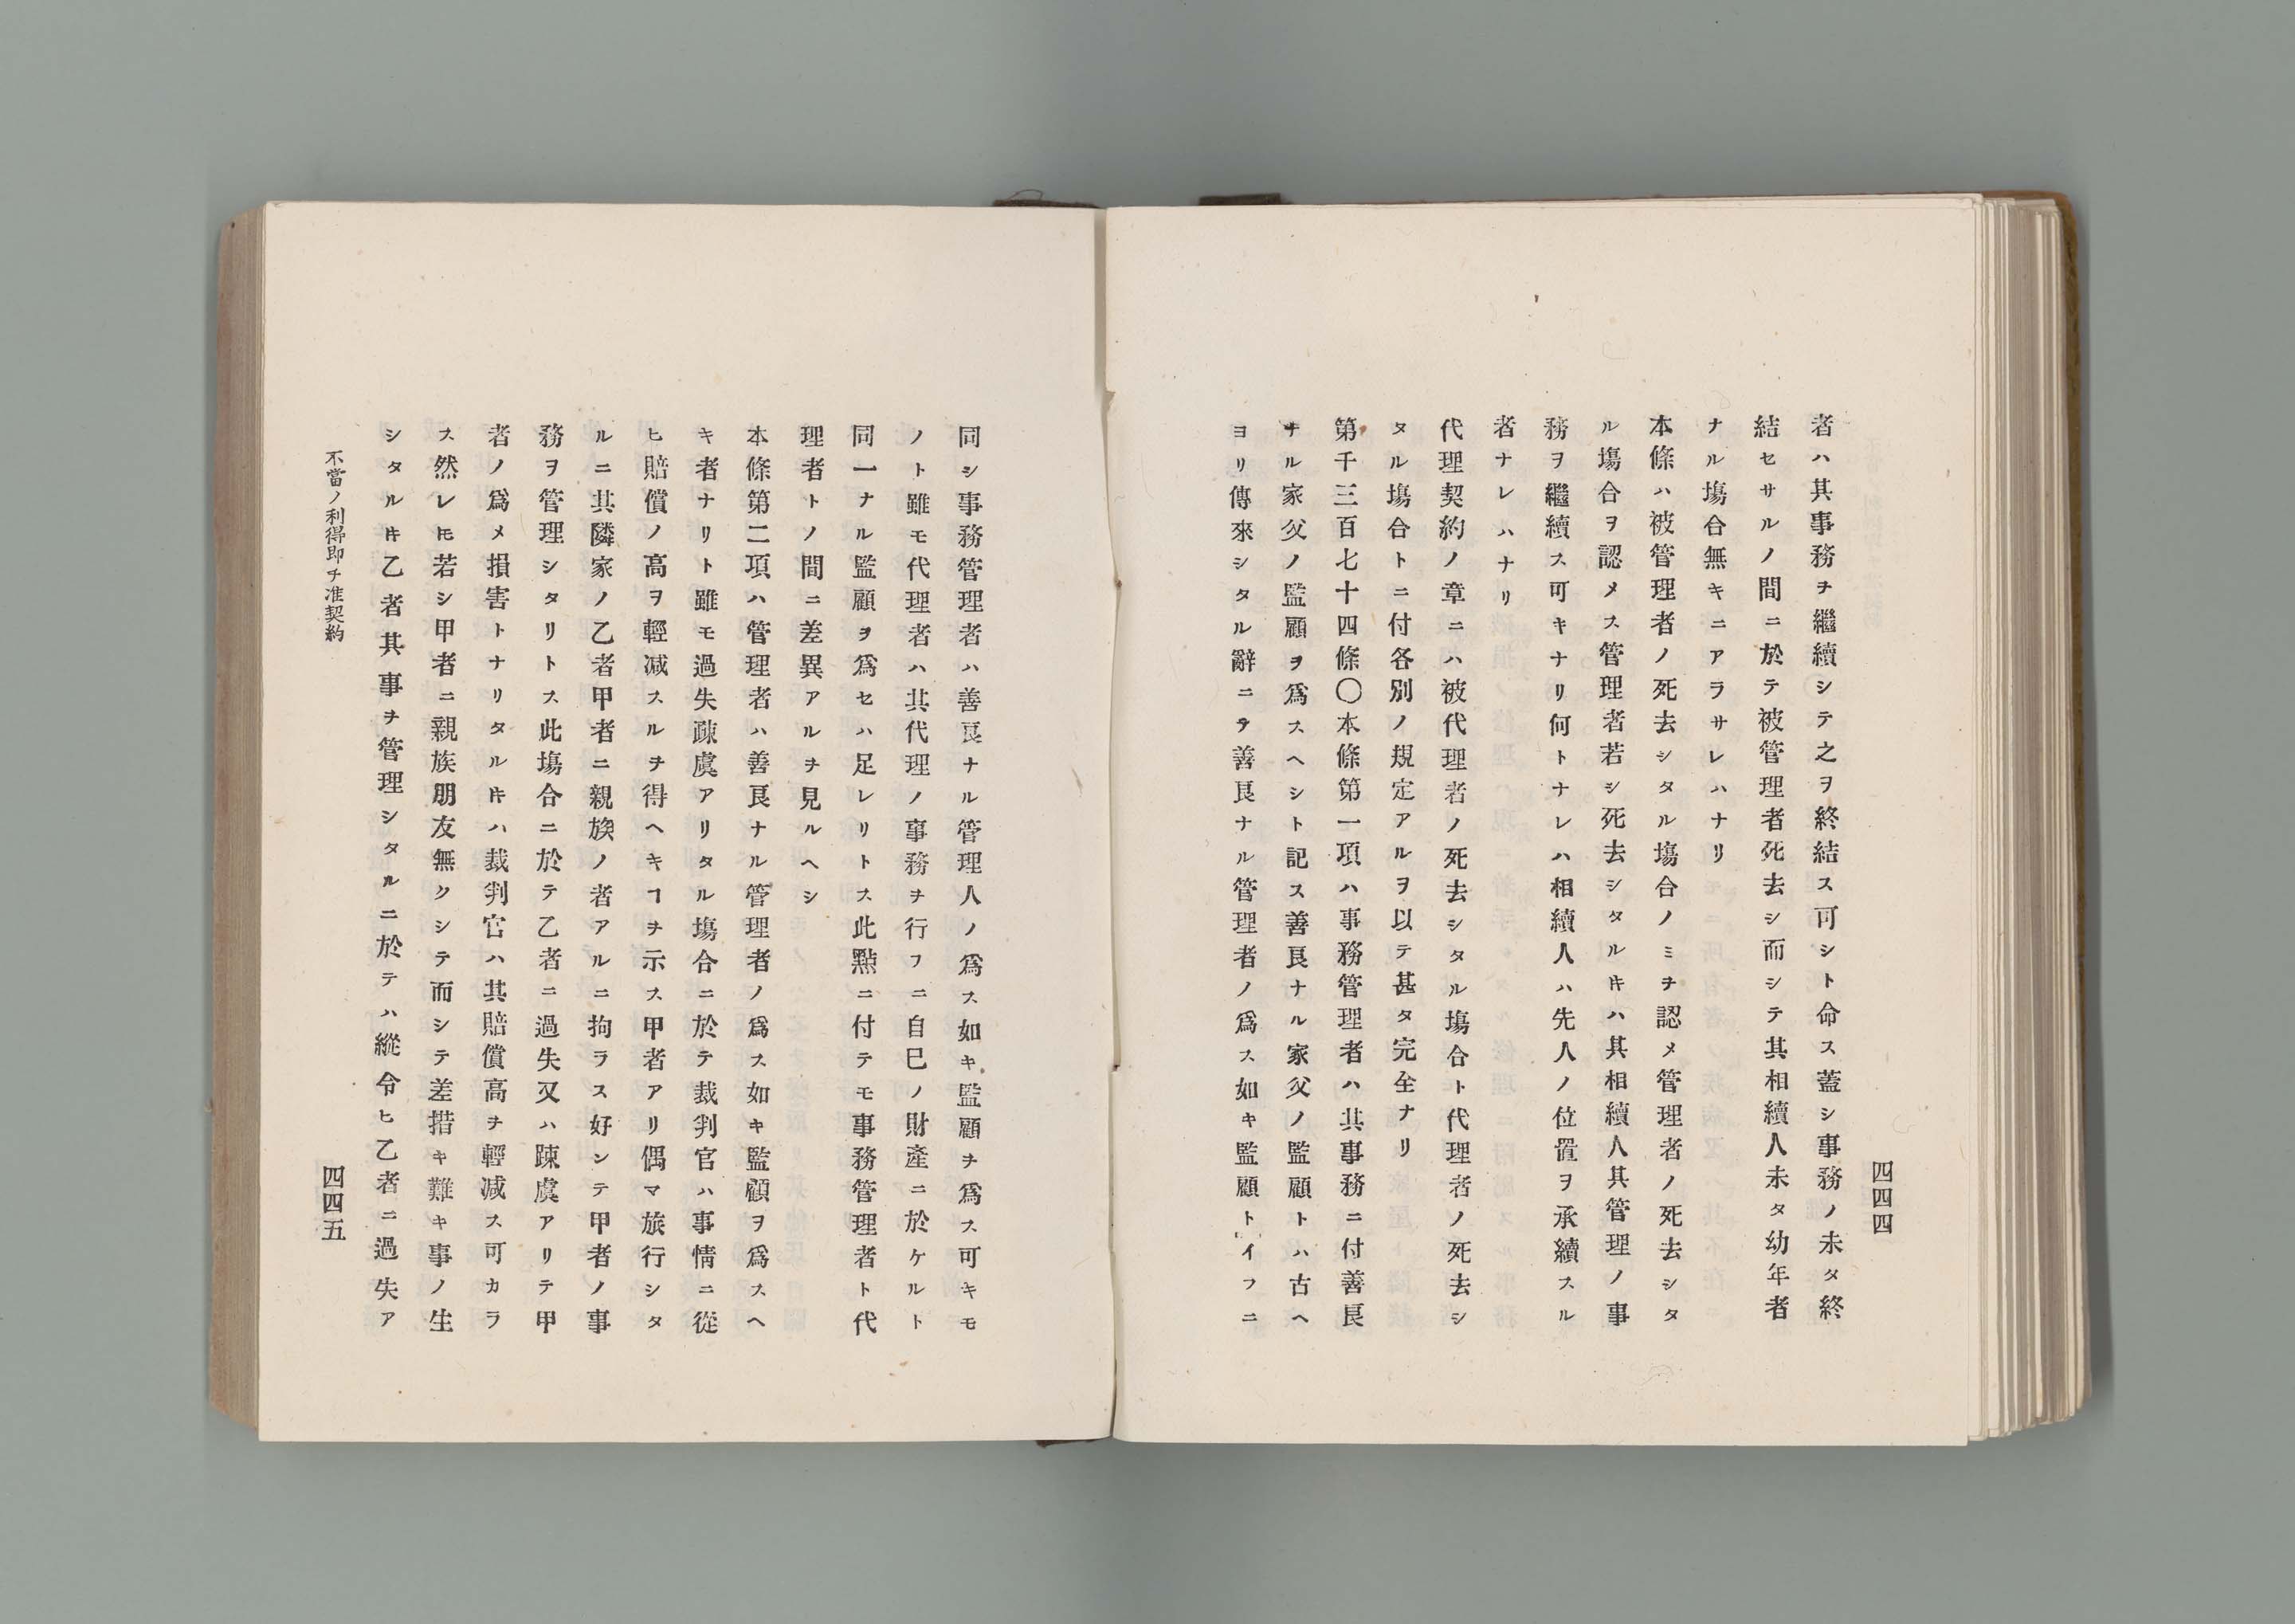 者ハ其事務ヲ繼續シテ之ヲ終結ス可シト命ス蓋シ事務ノ未タ終
結セサルノ間ニ於テ被管理者死去シ而シテ其相續人未タ幼年者
ナル塲合無キニアラサレハナリ
本條ハ被管理者ノ死去シタル塲合ノミヲ認メ管理者ノ死去シタ
ル塲合ヲ認メス管理者若シ死去シタルキハ其相續人其管理ノ事
務ヲ繼續ス可キナリ何トナレハ相續人ハ先人ノ位置ヲ承續スル
者ナレハナリ
代理契約ノ章ニハ被代理者ノ死去シタル塲合ト代理者ノ死去シ
タル塲合トニ付各別ノ規定アルヲ以テ甚タ完全ナリ
第千三百七十四條〇本條第一項ハ事務管理者ハ其事務ニ付善良
ナル家父ノ監顧ヲ爲スヘシト記ス善良ナル家父ノ監顧トハ古ヘ
ヨリ傳來シタル辭ニテ善良ナル管理者ノ爲ス如キ監顧トイフニ
四四四
同シ事務管理者ハ善良ナル管理人ノ爲ス如キ監顧ヲ爲ス可キモ
ノト雖モ代理者ハ其代理ノ事務ヲ行フニ自己ノ財產ニ於ケルト
同一ナル監顧ヲ爲セハ足レリトス此點ニ付テモ事務管理者ト代
理者トノ間ニ差異アルヲ見ルヘシ
本條第二項ハ管理者ハ善良ナル管理者ノ爲ス如キ監顧ヲ爲スヘ
キ者ナリト雖モ過失疎虞アリタル塲合ニ於テ裁判官ハ事情ニ從
ヒ賠償ノ高ヲ輕减スルヲ得ヘキヿヲ示ス甲者アリ偶マ旅行シタ
ルニ其隣家ノ乙者甲者ニ親族ノ者アルニ拘ラス好ンテ甲者ノ事
務ヲ管理シタリトス此塲合ニ於テ乙者ニ過失又ハ踈虞アリテ甲
者ノ爲メ損害トナリタルキハ裁判官ハ其賠償高ヲ輕减ス可カラ
ス然レ𪜈若シ甲者ニ親族朋友無クシテ而シテ差措キ難キ事ノ生
シタルキ乙者其事ヲ管理シタルニ於テハ縱令ヒ乙者ニ過失ア
不當ノ利得即チ准契約
四四五